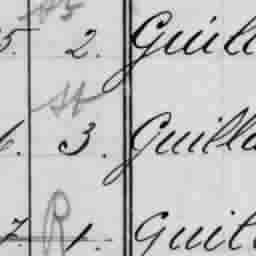 5. 2. Guill
St
6. 3. Guilla
R
7. 1. Guil